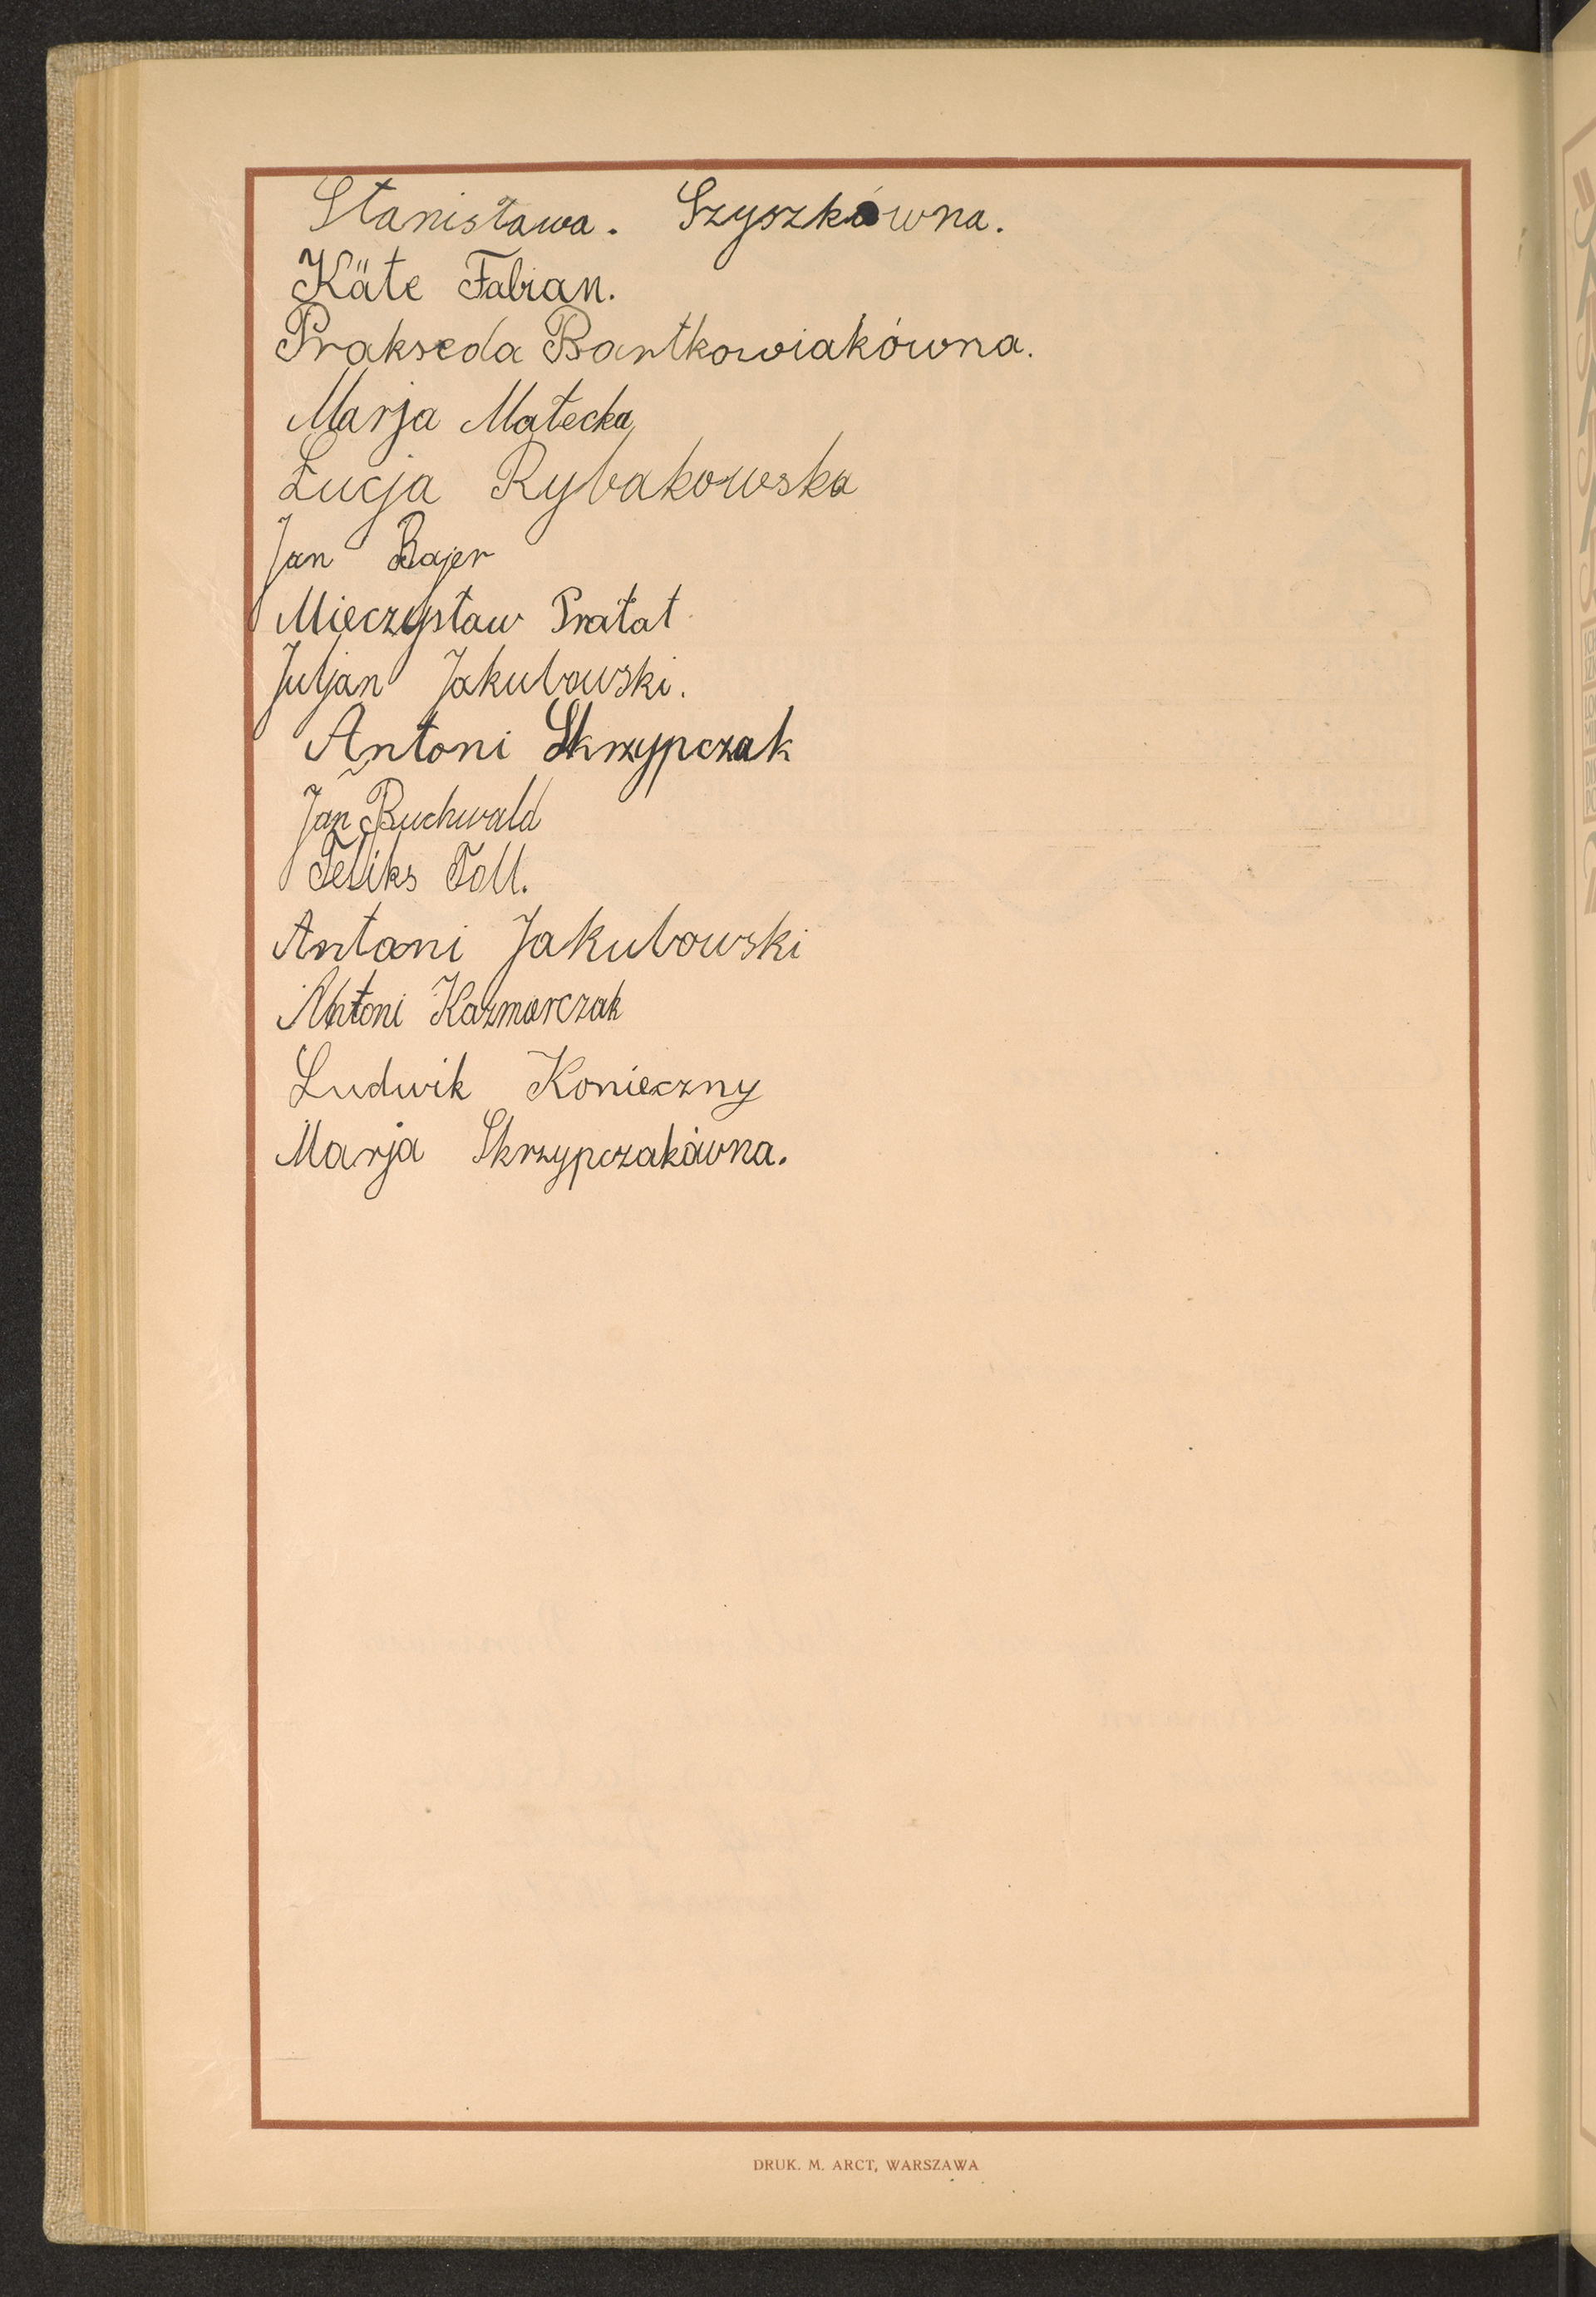 Stanisława. Szyszkówna.
Käte Fabian.
Prakseda Bartkowiakówna.
Marja Małecka
Łucja Rybakowska
Jan Bajer
Mieczysław Pratat
Juljan Jakubowski.
Antoni Skrzypczak
Jan Buchwald
Feliks Foll.
Antoni Jakubowski
Antoni Kazmarczak
Ludwik Konieczny
Marja Skrzypczakówna.
DRUK. M. ARCT, WARSZAWA